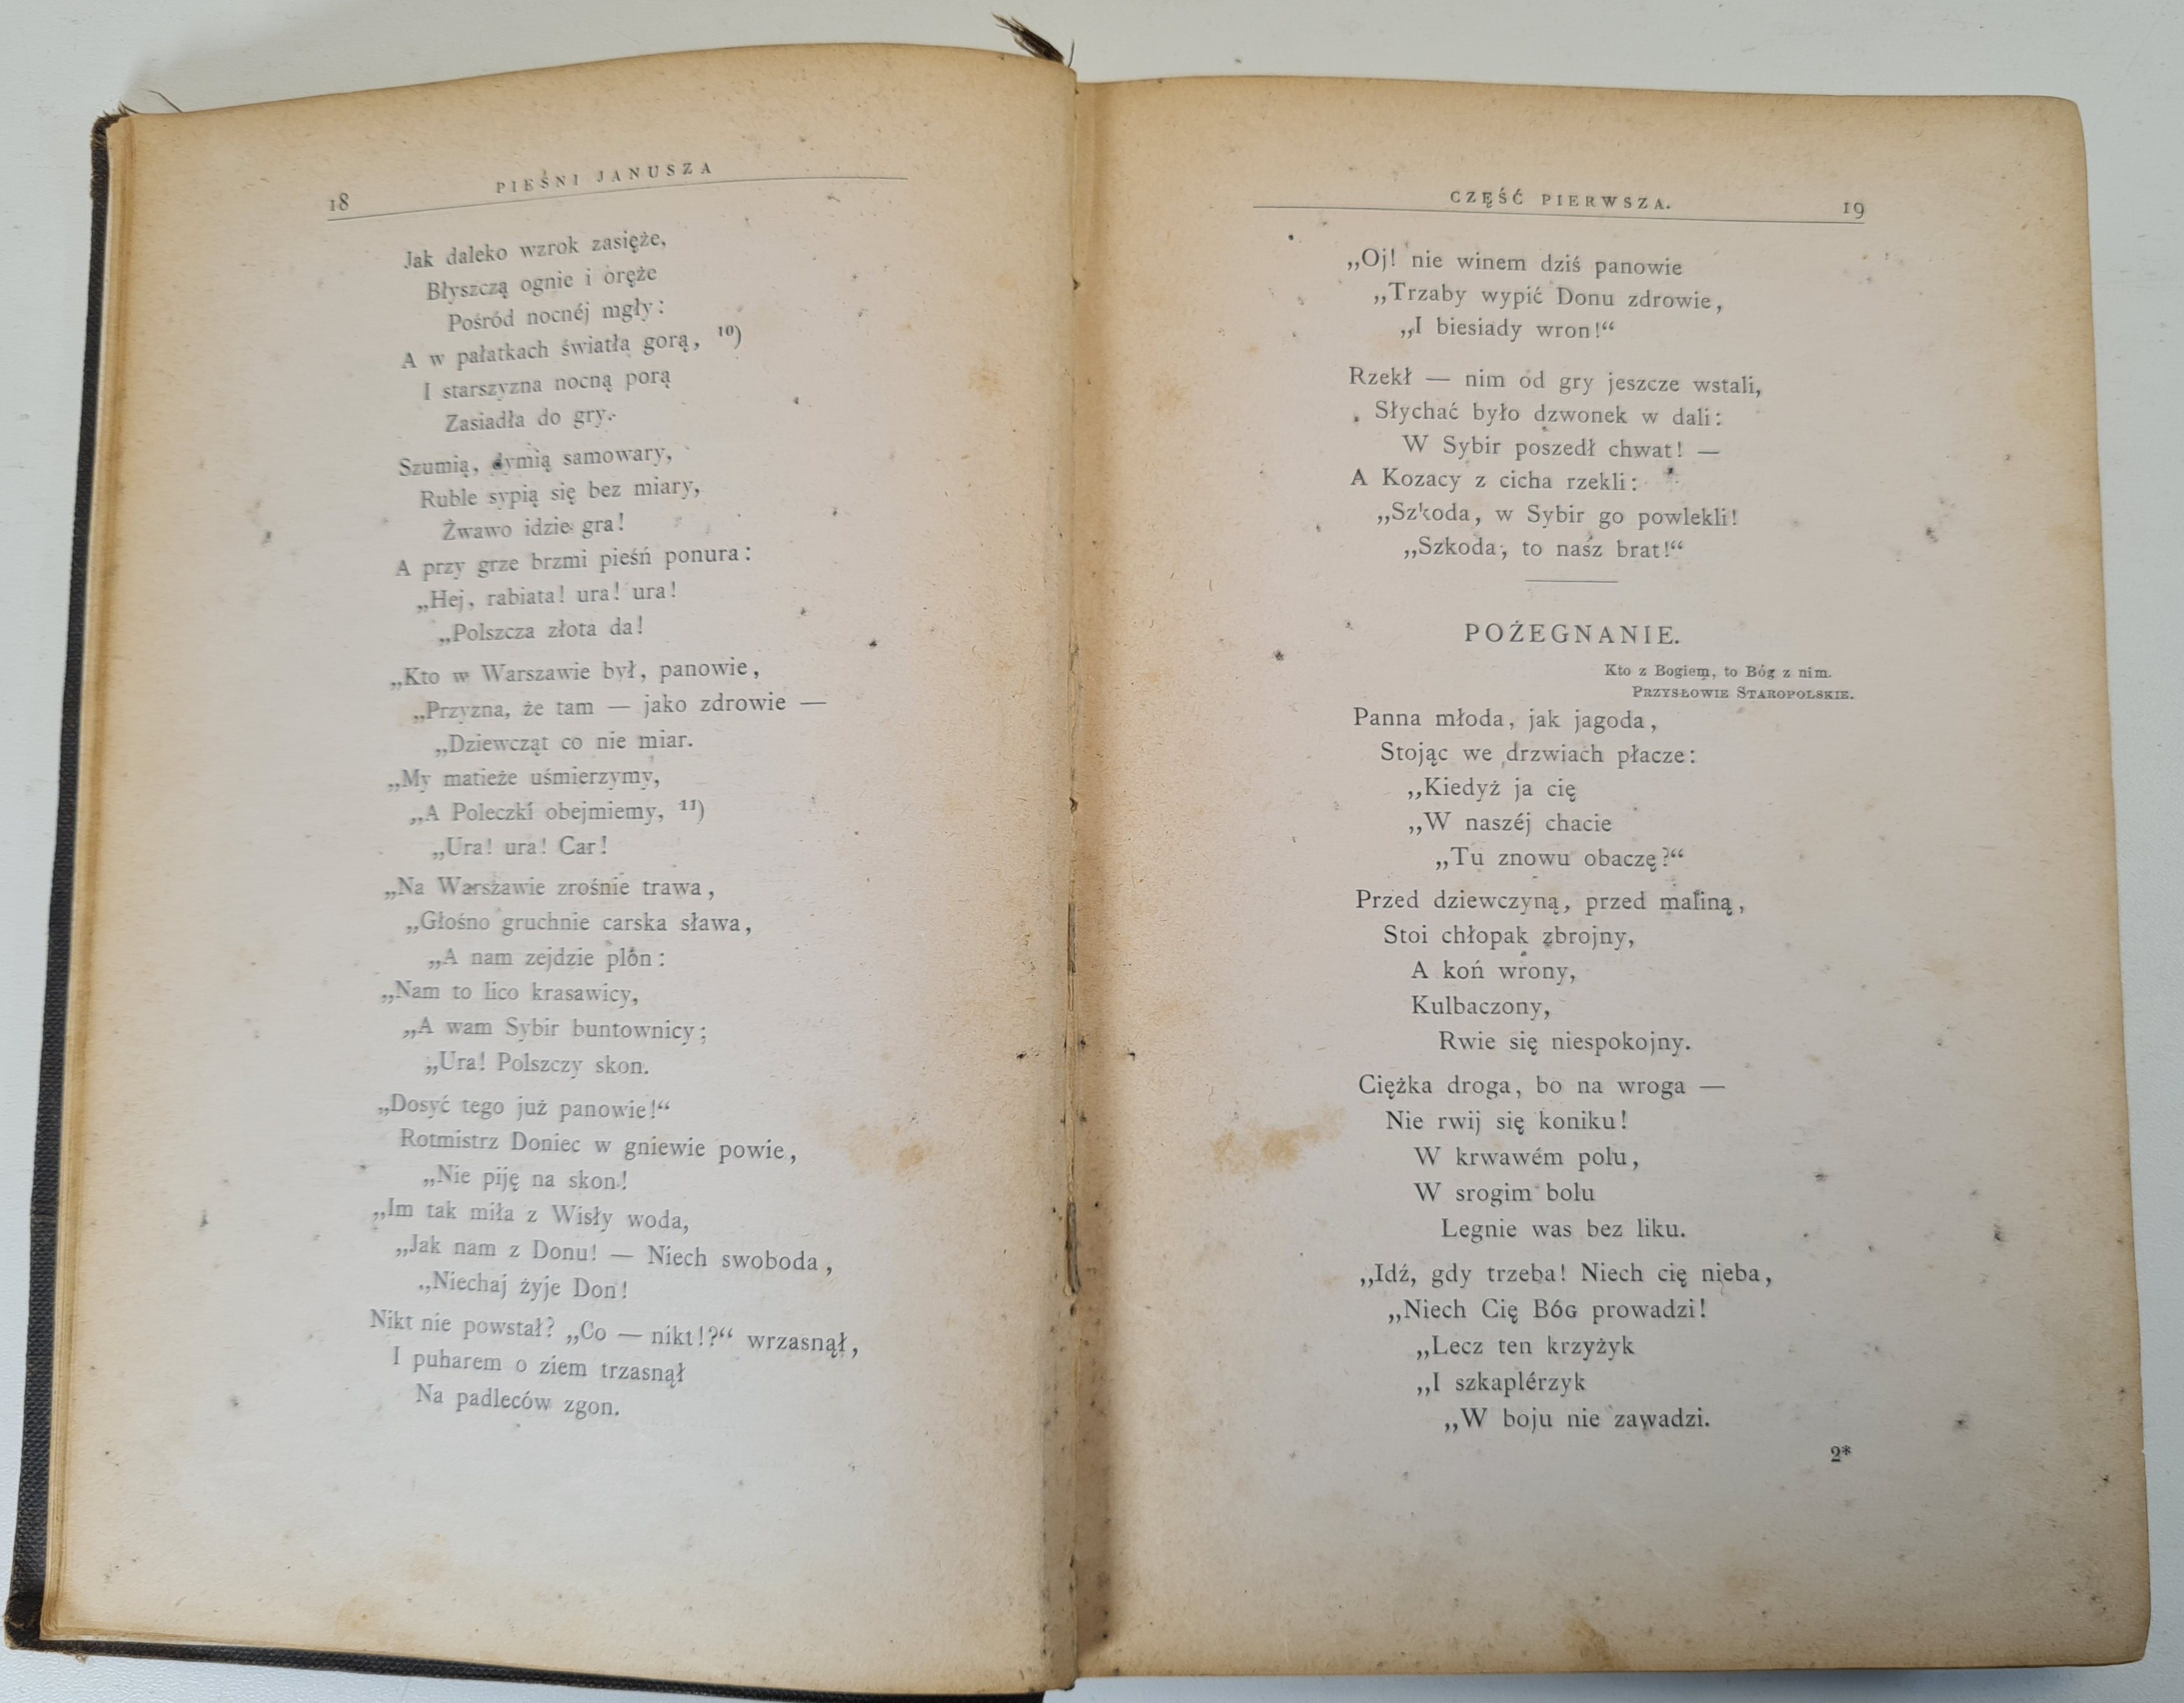 18
PIEŚNI JANUSZA
Jak daleko wzrok zasięże,
Błyszczą ognie i oręże
Pośród nocnéj mgły:
A w pałatkach światła gorą, 10)
I starszyzna nocną porą
Zasiadła do gry.
Szumią, dymią samowary,
Ruble sypią się bez miary,
Żwawo idzie gra!
A przy grze brzmi pieśń ponura:
„Hej, rabiata! ura! ura!
„Polszcza złota da!
„Kto w Warszawie był, panowie,
„Przyzna, że tam — jako zdrowie —
„Dziewcząt co nie miar.
„My matieże uśmierzymy,
„A Poleczki obejmiemy, 11)
„Ura! ura! Car!
„Na Warszawie zrośnie trawa,
„Głośno gruchnie carska sława,
„A nam zejdzie plon:
„Nam to lico krasawicy,
„A wam Sybir buntownicy;
„Ura! Polszczy skon.
„Dosyć tego już panowie!“
Rotmistrz Doniec w gniewie powie,
„Nie piję na skon!
„Im tak miła z Wisły woda,
„Jak nam z Donu! — Niech swoboda,
„Niechaj żyje Don!
Nikt nie powstał? „Co — nikt!?“ wrzasnął,
I puharem o ziem trzasnął
Na padleców zgon.
CZĘŚĆ PIERWSZA.
19
„Oj! nie winem dziś panowie
„Trzaby wypić Donu zdrowie,
„I biesiady wron!“
Rzekł — nim od gry jeszcze wstali,
Słychać było dzwonek w dali:
W Sybir poszedł chwat! —
A Kozacy z cicha rzekli:
„Szkoda, w Sybir go powlekli!
„Szkoda, to nasz brat!“
POŻEGNANIE.
Kto z Bogiem, to Bóg z nim.
PRZYSŁOWIE STAROPOLSKIE.
Panna młoda, jak jagoda,
Stojąc we drzwiach płacze:
„Kiedyż ja cię
„W naszéj chacie
„Tu znowu obaczę?“
Przed dziewczyną, przed maliną,
Stoi chłopak zbrojny,
A koń wrony,
Kulbaczony,
Rwie się niespokojny.
Ciężka droga, bo na wroga —
Nie rwij się koniku!
W krwawém polu,
W srogim bolu
Legnie was bez liku.
„Idź, gdy trzeba! Niech cię nieba,
„Niech Cię BÓG prowadzi!
„Lecz ten krzyżyk
„I szkaplérzyk
„W boju nie zawadzi.
2*